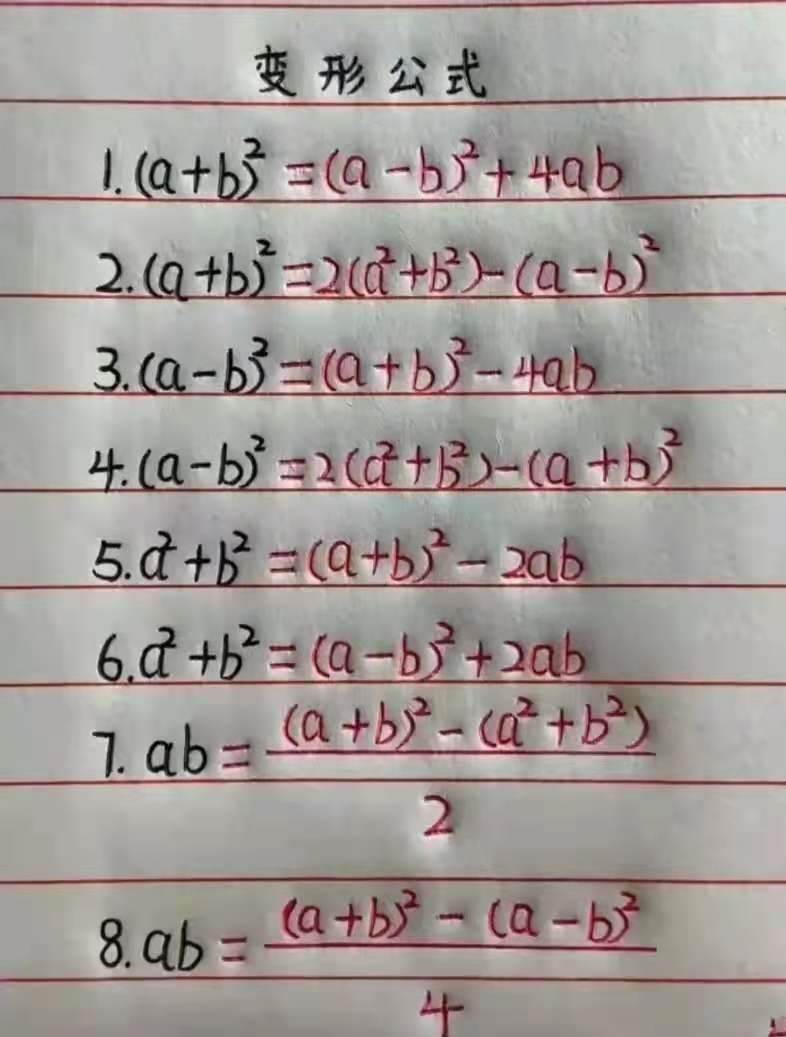 变形公式
1. (a+b)² = (a-b)² + 4ab
2. (a+b)² = 2(a²+b²) - (a-b)²
3. (a-b)² = (a+b)² - 4ab
4. (a-b)² = 2(a²+b²) - (a+b)²
5. a²+b² = (a+b)² - 2ab
6. a²+b² = (a-b)² + 2ab
7. ab = ((a+b)² - (a²+b²)) / 2
8. ab = ((a+b)² - (a-b)²) / 4